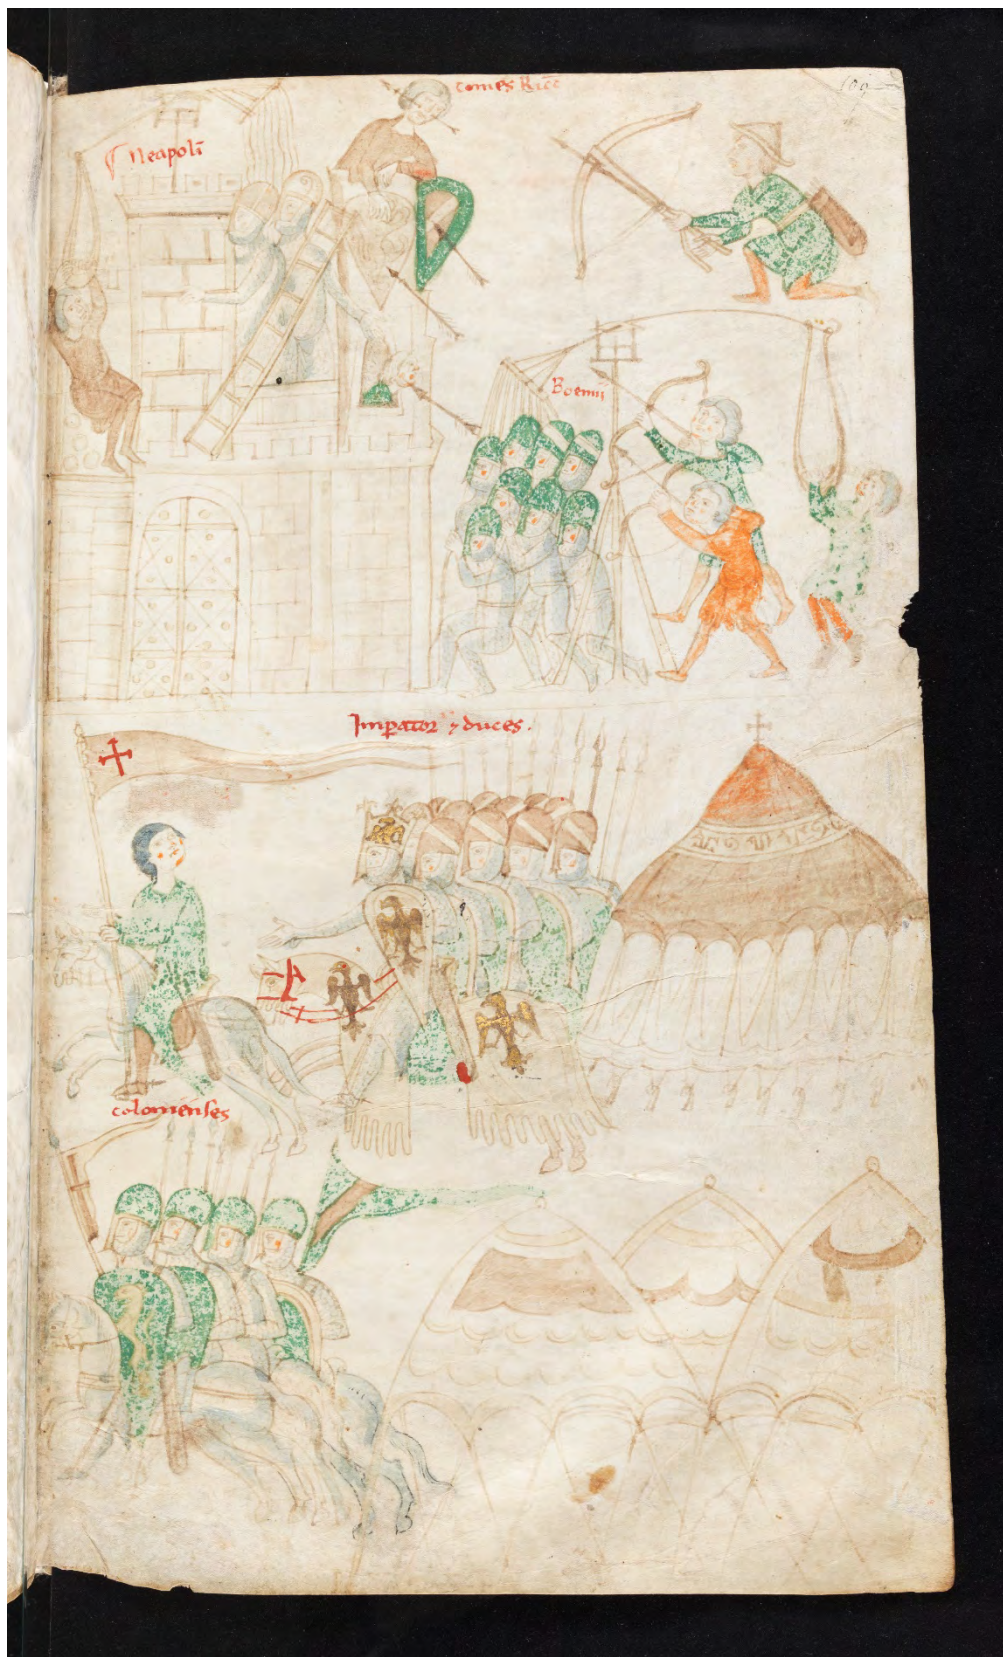 comes Ricc̄
109
Neapolī
Boemii
Imꝑator ⁊ duces.
colonienses